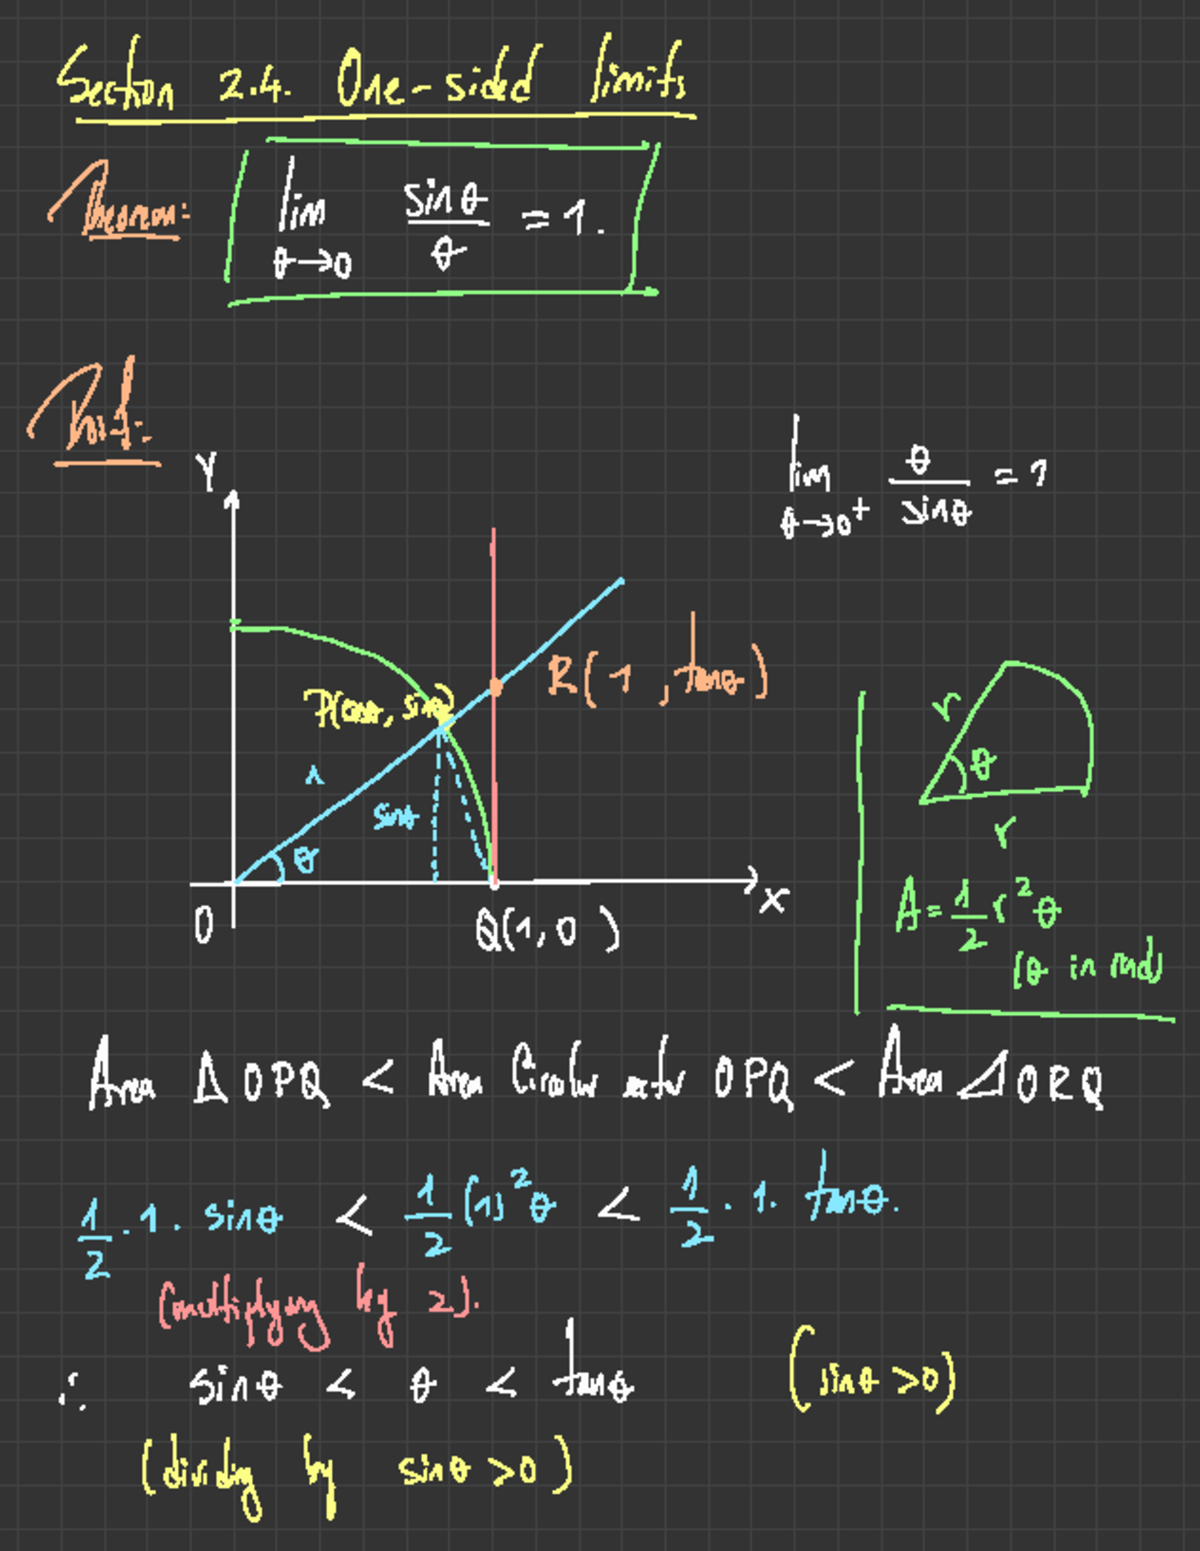 Section 2.4. One-sided limits
Theorem: lim θ→0 sinθ/θ = 1.
Proof:
lim θ→0+ θ/sinθ = 1
Y
R(1, tanθ)
P(cosθ, sinθ)
1
sinθ
θ
O
Q(1,0)
X
r
θ
r
A = 1/2 r²θ
(θ in rad)
Area Δ OPQ < Area Circular sector OPQ < Area ⊿ ORQ
1/2 . 1 . sinθ < 1/2 (1)²θ < 1/2 . 1 . tanθ.
(multiplying by 2).
∴ sinθ < θ < tanθ (sinθ > 0)
(dividing by sinθ > 0)